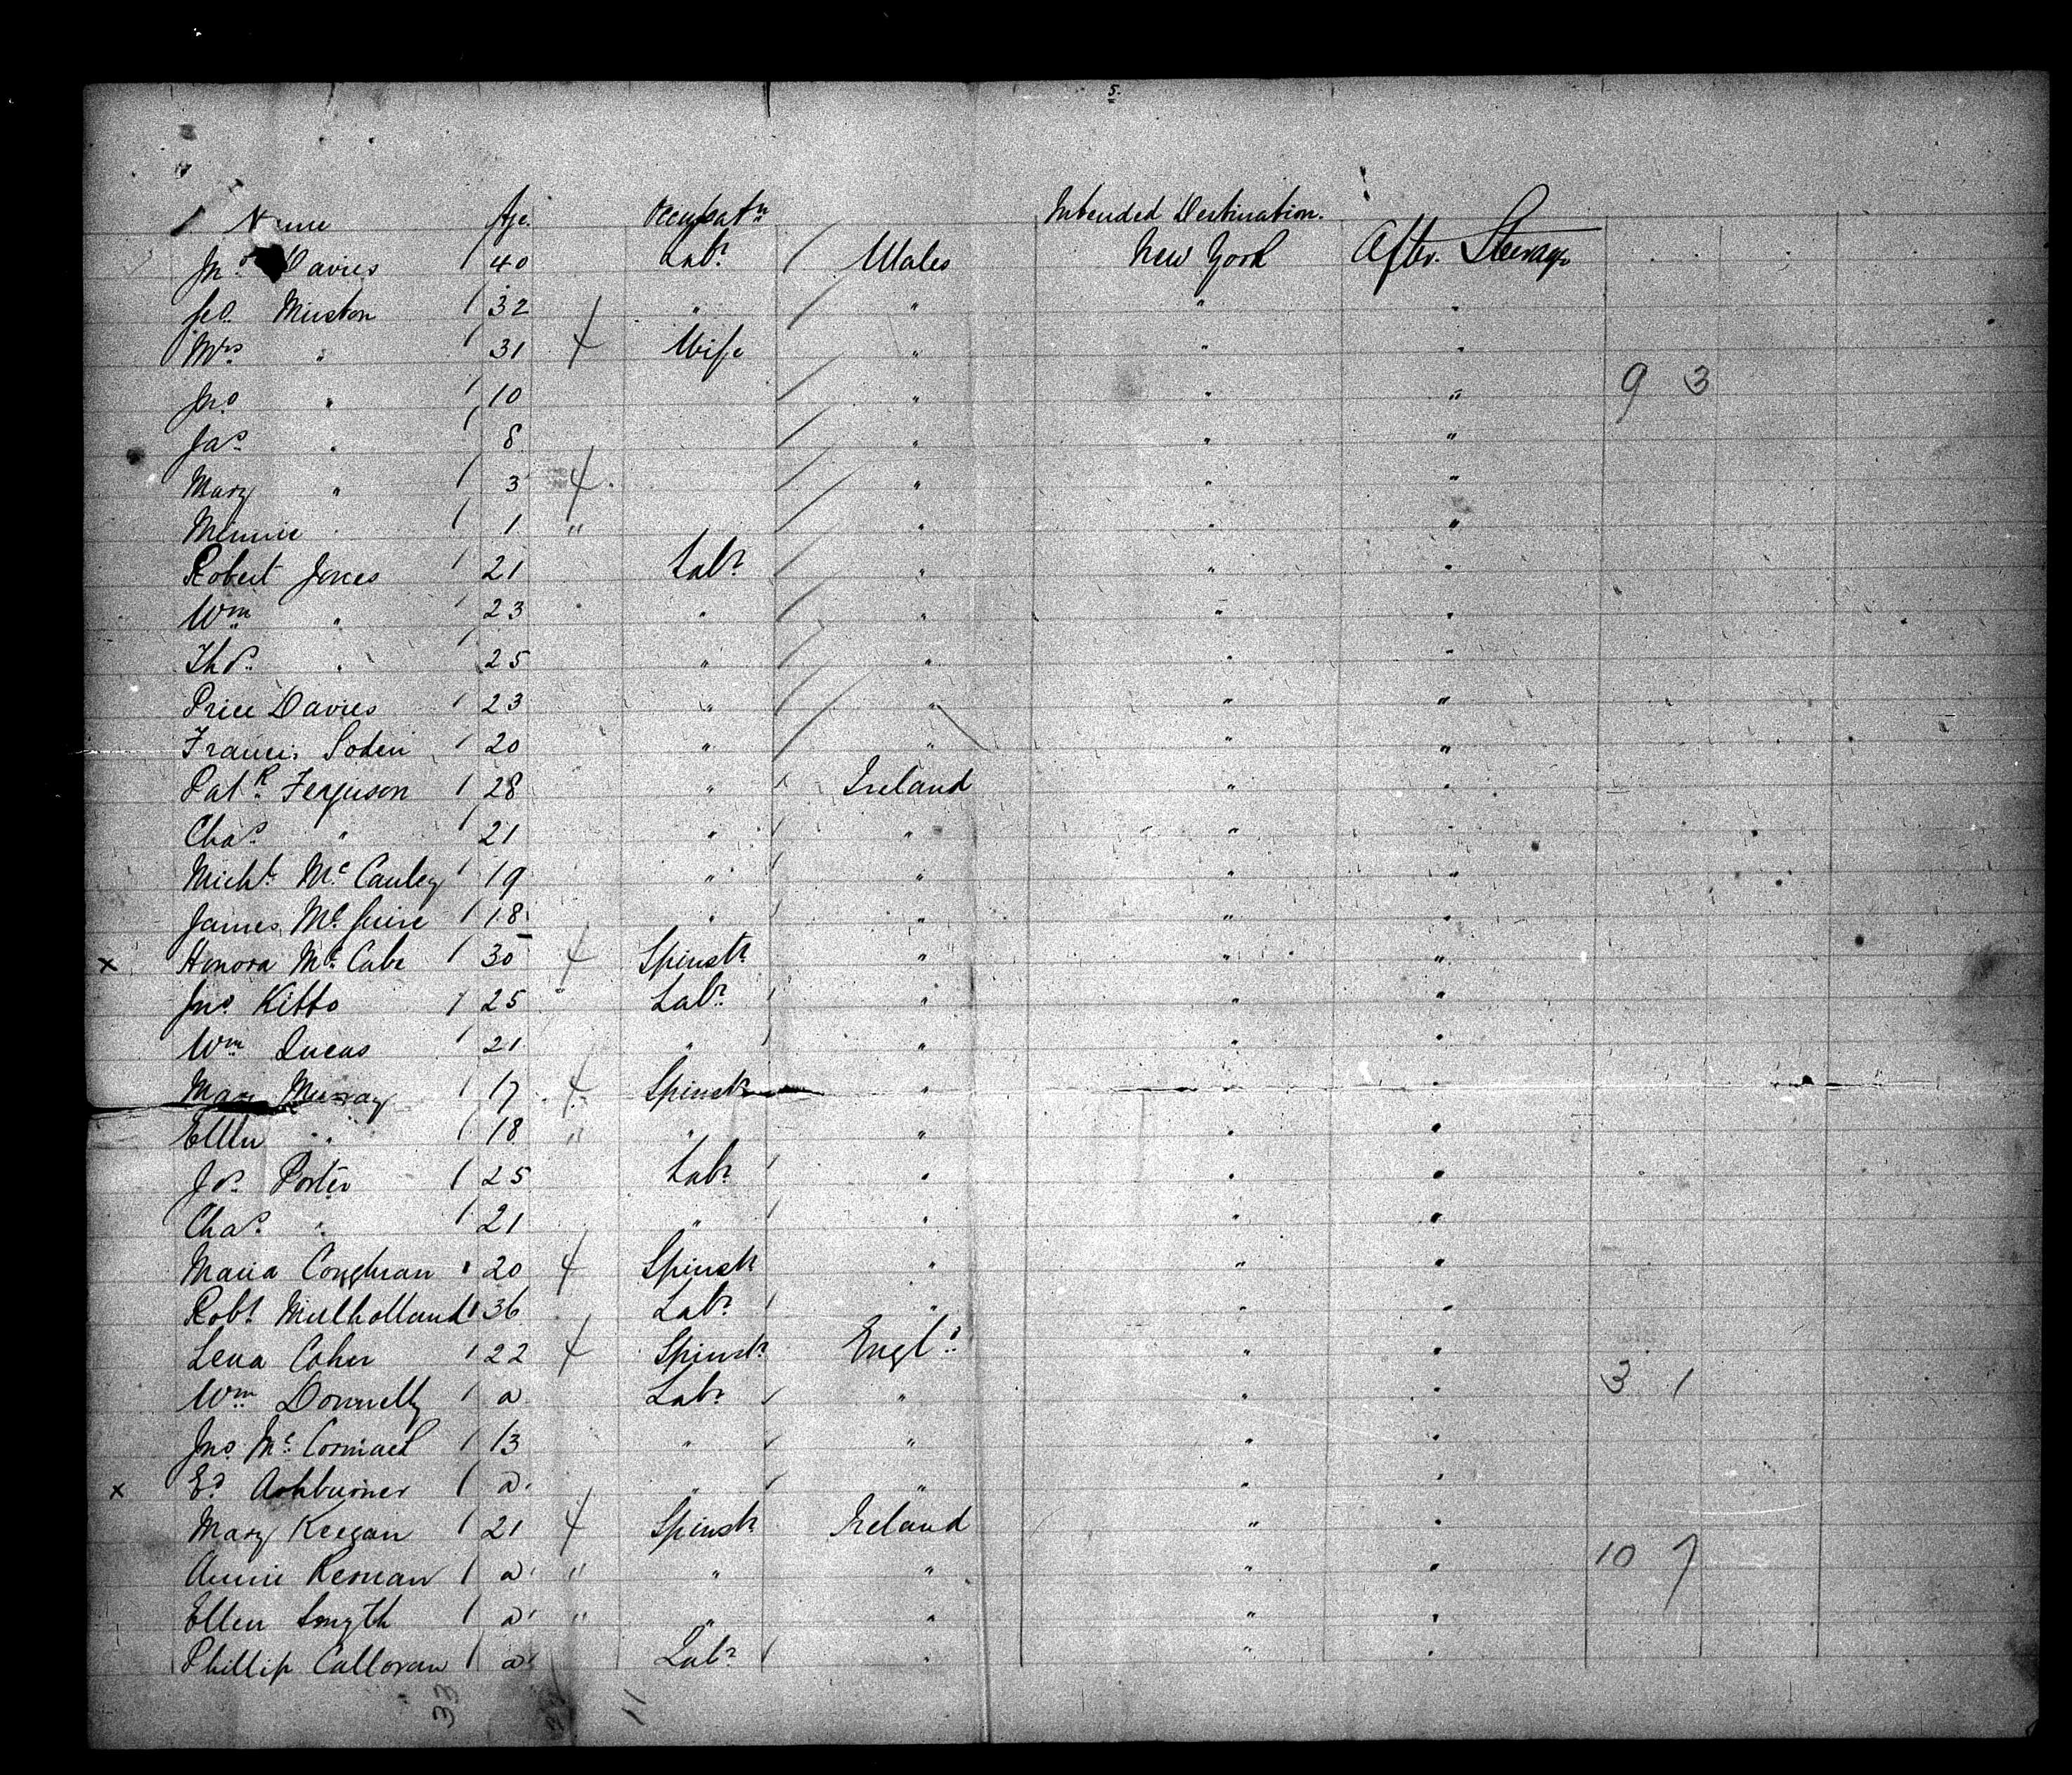 5.
Name Age. Occupatn Intended Destination.
Jno Davies / 40 Labr / Wales New York After Steerage
Geo. Muston / 32 " / " " "
Mrs " / 31 Wife / " " "
Jno " / 10 / " " " 9 3
Jas " / 8 / " " "
Mary " / 3 / " " "
Minnie " / 1 " / " " "
Robert Jones / 21 Labr / " " "
Wm " / 23 " / " " "
Thos. " / 25 " / " " "
Price Davies / 23 " / " " "
Francis Soden / 20 " / " " "
Patk Ferguson / 28 " / Ireland " "
Chas. " / 21 " / " " "
Michl. Mc Cauley / 19 " / " " "
James Mc Guire / 18 " / " " "
x Honora Mc Cabe / 30 Spinstr " " "
Jno. Kitto / 25 Labr / " " "
Wm Lucas / 21 " / " " "
Mary Murray / 17 Spinstr " " "
Ellen " / 18 " " " " "
Jos. Porter / 25 Labr / " " "
Chas. " / 21 " / " " "
Maria Coughran / 20 Spinstr " " "
Robt Mulholland / 36 Labr / " " "
Lena Cohen / 22 Spinstr Engld " "
Wm Donnelly / a Labr / " " " 3 1
Jno. Mc Cormack / 13 " / " " "
x Ed Ashburner / a. " / " " "
Mary Keegan / 21 Spinstr Ireland " "
Annie Kernan / a. " " " " " 10 7
Ellen Smyth / a. " " " " "
Phillip Calloran / a Labr / " " "
33 11